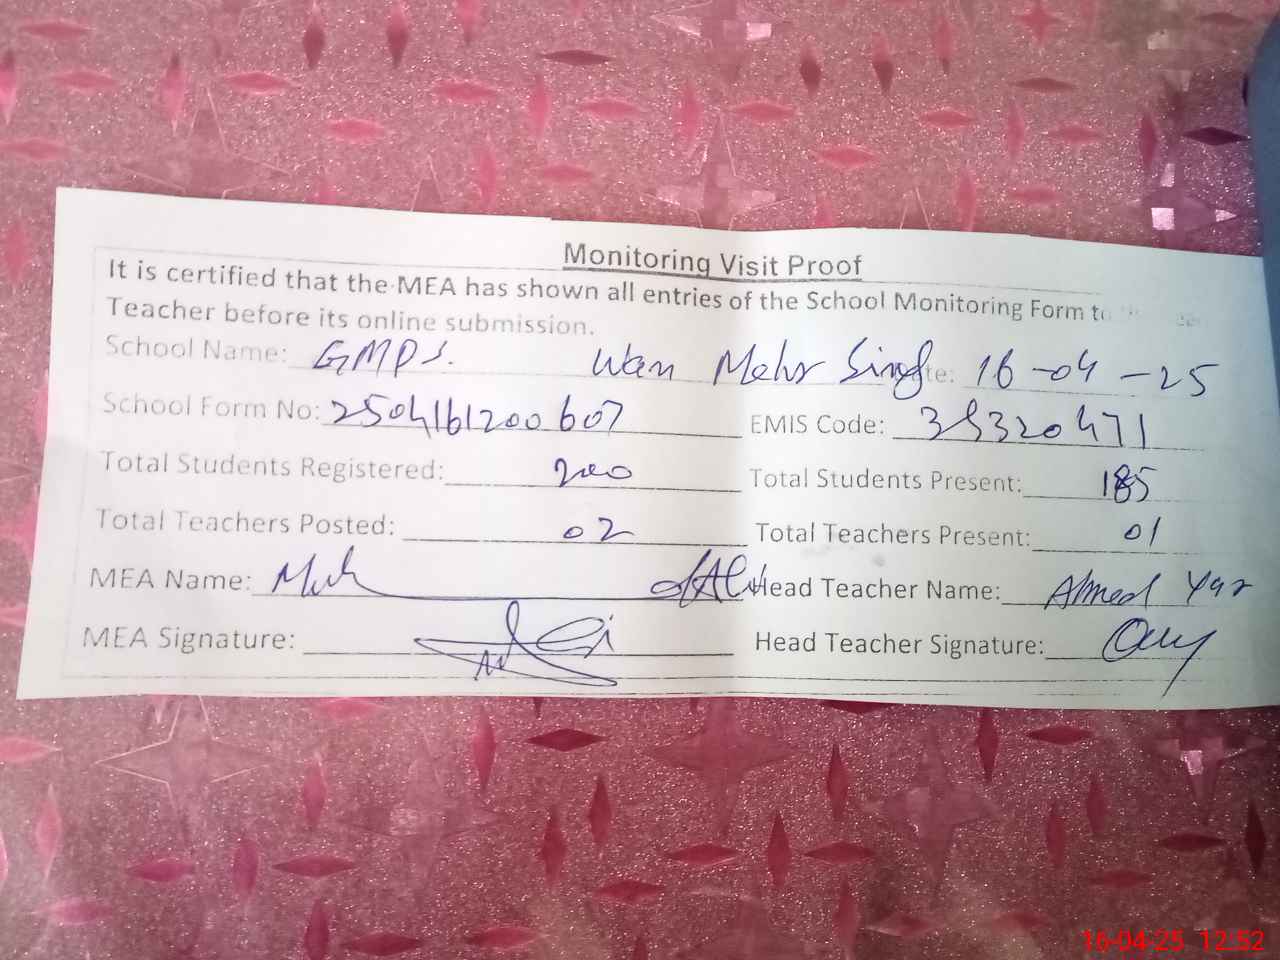 Monitoring Visit Proof
It is certified that the MEA has shown all entries of the School Monitoring Form to the
Teacher before its online submission.
School Name: GMPS. Wan Mehr Singh Date: 16-04-25
School Form No: 2504161200607 EMIS Code: 35320471
Total Students Registered: 200 Total Students Present: 185
Total Teachers Posted: 02 Total Teachers Present: 01
MEA Name: Head Teacher Name: Ahmed Yar
MEA Signature: Head Teacher Signature:
16-04-25 12:52